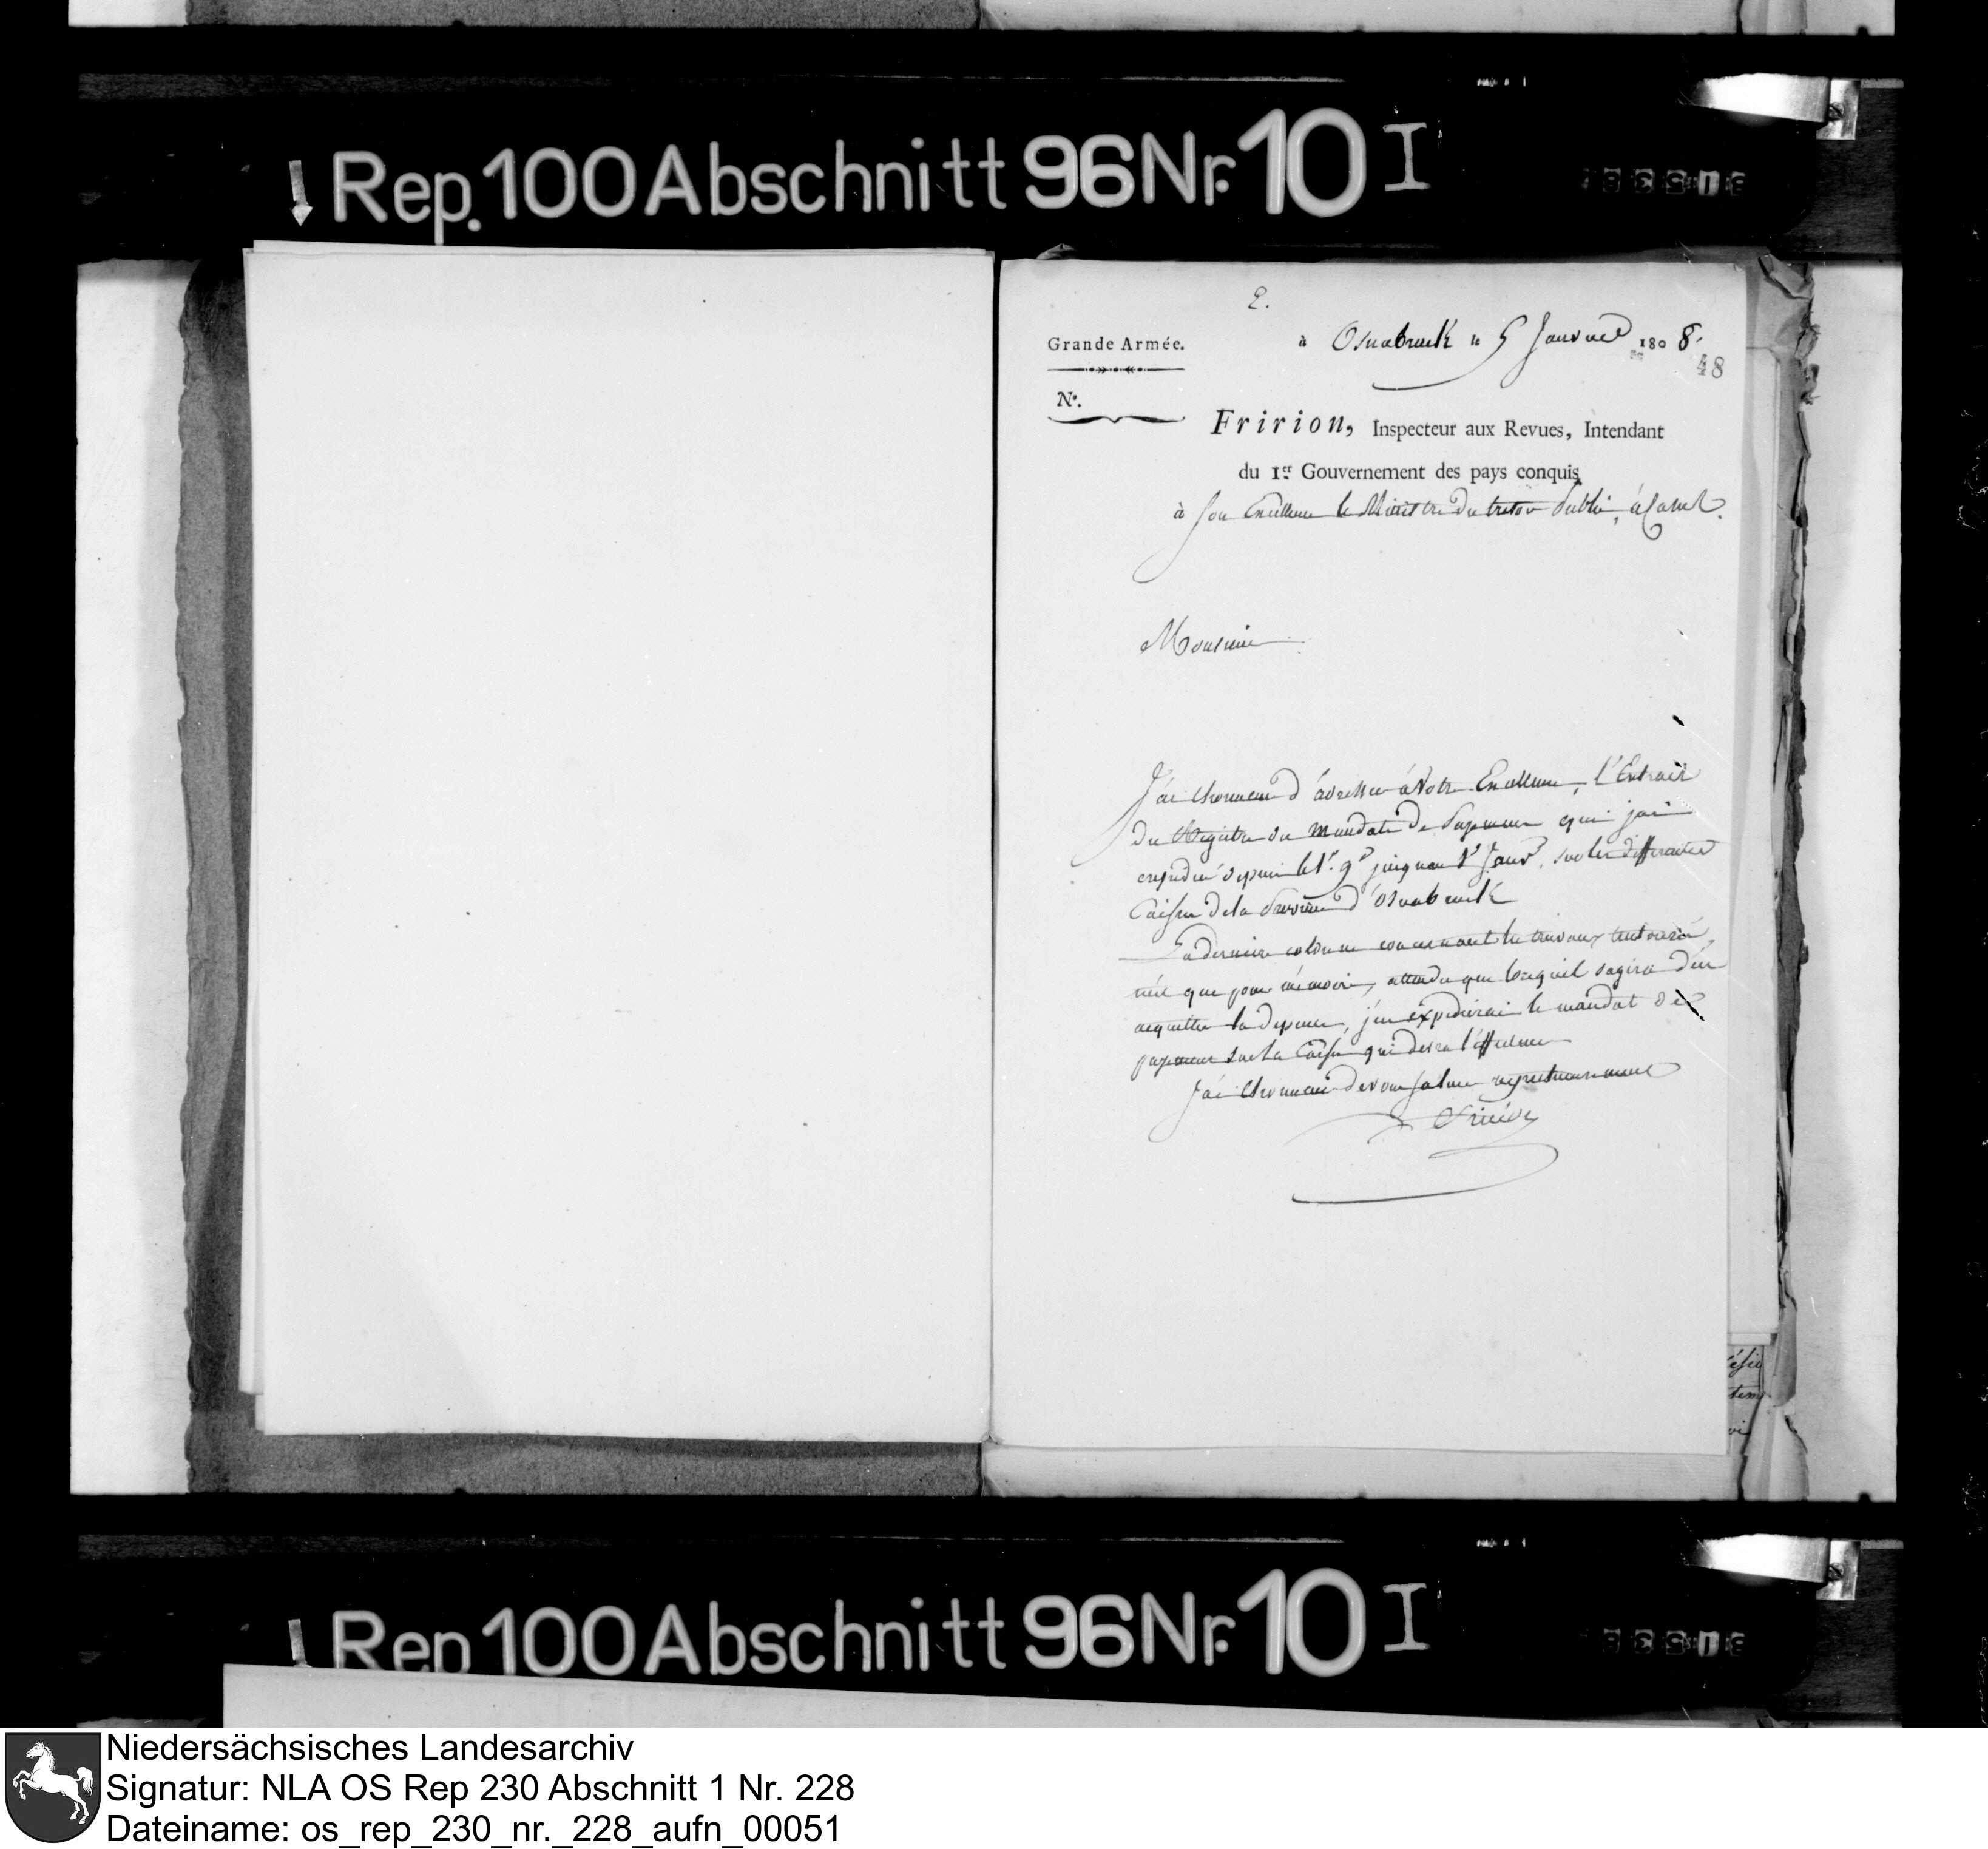 Rep. 100 Abschnitt 96 Nr. 10 I
2.
Grande Armée.
à Osnabruck le 5 Janvier 1808.
48
N°.
Fririon, Inspecteur aux Revues, Intendant
du 1er Gouvernement des pays conquis
à Son Excellence le Ministre du tresor Public, à Cassel.
Monsieur
J'ai l'honneur d'adresser à Votre Excellence, l'Extrait
du Registre des Mandats de Payemens que j'ai
expédiés depuis le 1er 9bre jusqu'au 1er Janvr. sur les differentes
Caisses de la Province d'Osnabruck
La derniere colonne concernant les travaux
n'est que pour mémoire, attendu que lorsqu'il s'agira d'en
acquitter la depense, j'en expédierai le mandat de
payement sur la Caisse qui devra l'effectuer
J'ai l'honneur de vous saluer respectueusement
Fririon
Rep 100 Abschnitt 96 Nr. 10 I
Niedersächsisches Landesarchiv
Signatur: NLA OS Rep 230 Abschnitt 1 Nr. 228
Dateiname: os_rep_230_nr._228_aufn_00051